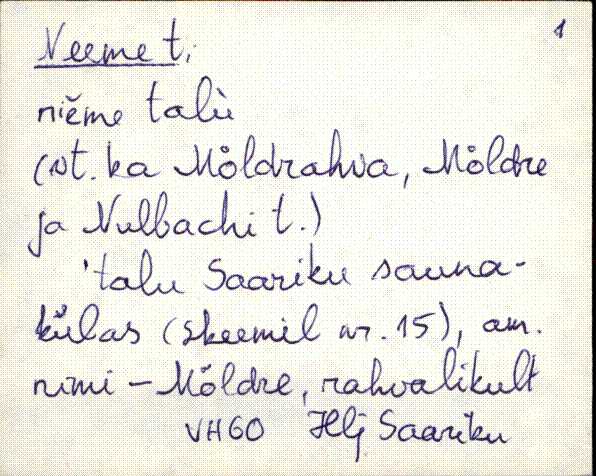 1
Neeme t.
niĕme talù
(vt. ka Mõldrahva, Mõldre
ja Nulbachi t.)
'talu Saariku sauna-
külas (skeemil nr. 15), am.
nimi – Mõldre, rahvalikult
VH60 Hlj Saariku